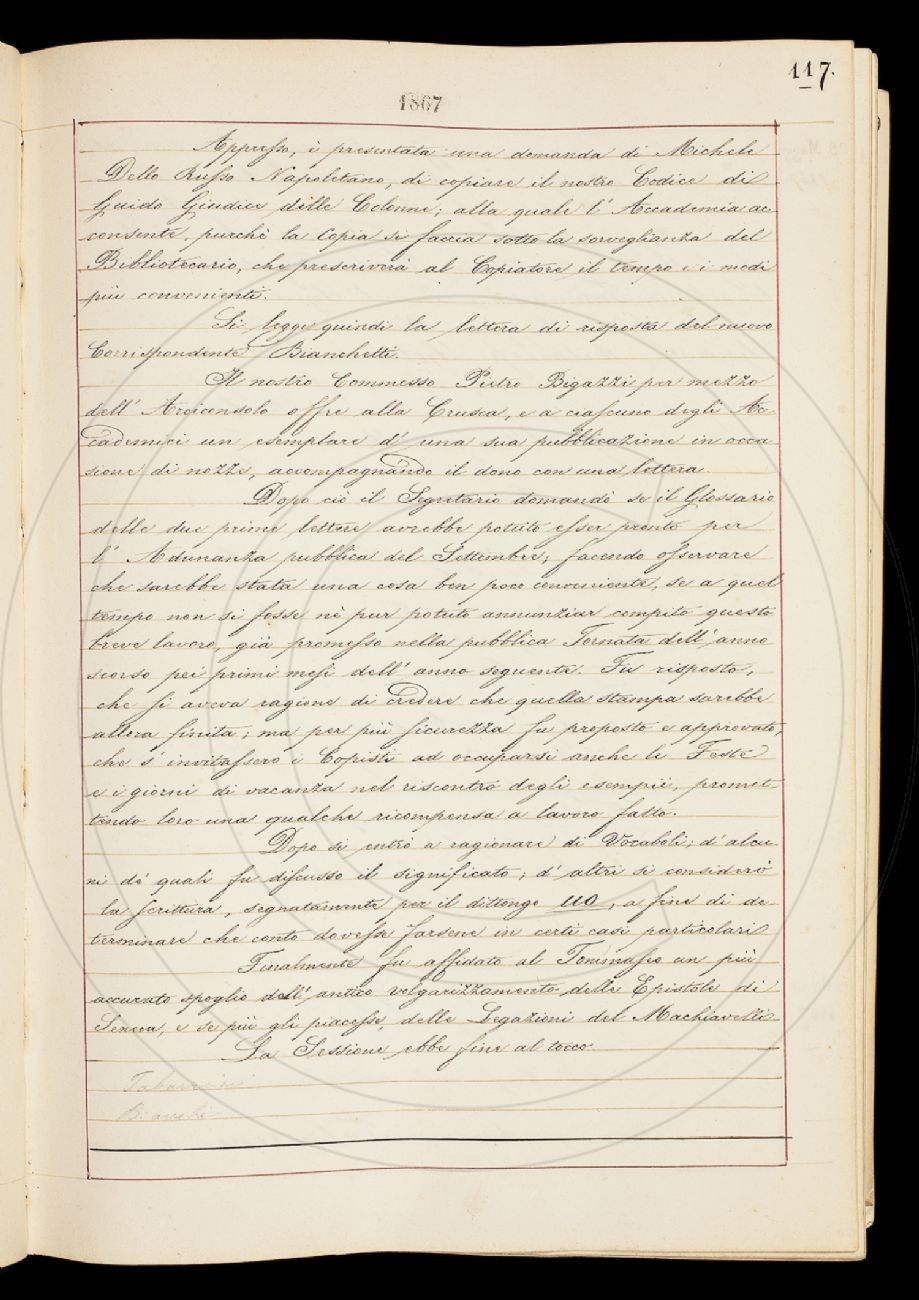 117.
1867
Appresso, è presentata una domanda di Michele
Dello Russo Napoletano, di copiare il nostro Codice di
Guido Giudice delle Colonne; alla quale l' Accademia ac-
consente, purchè la Copia si faccia sotto la sorveglianza del
Bibliotecario, che prescriverà al Copiatore il tempo e i modi
più convenienti.
Si legge quindi la lettera di risposta del nuovo
Corrispondente Bianchetti.
Il nostro Commesso Pietro Bigazzi per mezzo
dell' Arciconsolo offre alla Crusca, e a ciascuno degli Ac-
cademici un esemplare d' una sua pubblicazione in occa
sione di nozze, accompagnando il dono con una lettera.
Dopo ciò il Segretario domandò se il Glossario
delle due prime lettere avrebbe potuto esser pronto per
l' Adunanza pubblica del Settembre; facendo osservare
che sarebbe stata una cosa ben poco conveniente, se a quel
tempo non si fosse nè pur potuto annunziar compito questo
breve lavoro, già promesso nella pubblica Tornata dell' anno
scorso pei primi mesi dell' anno seguente. Fu risposto,
che si aveva ragione di credere che quella stampa sarebbe
allora finita; ma per più sicurezza fu proposto e approvato,
che s' invitassero i Copisti ad occuparsi anche le Feste
e i giorni di vacanza nel riscontro degli esempii, promet-
tendo loro una qualche ricompensa a lavoro fatto.
Dopo si entrò a ragionare di Vocaboli; d' alcu-
ni de' quali fu discusso il significato; d' altri si considerò
la scrittura, segnatamente per il dittongo uo, a fine di de-
terminare che conto dovesse farsene in certi casi particolari
Finalmente fu affidato al Tommaseo un più
accurato spoglio dell' antico volgarizzamento delle Epistole di
Seneca, e se più gli piacesse, delle Legazioni del Machiavelli
La Sessione ebbe fine al tocco.
Tabarrini
Bianchi